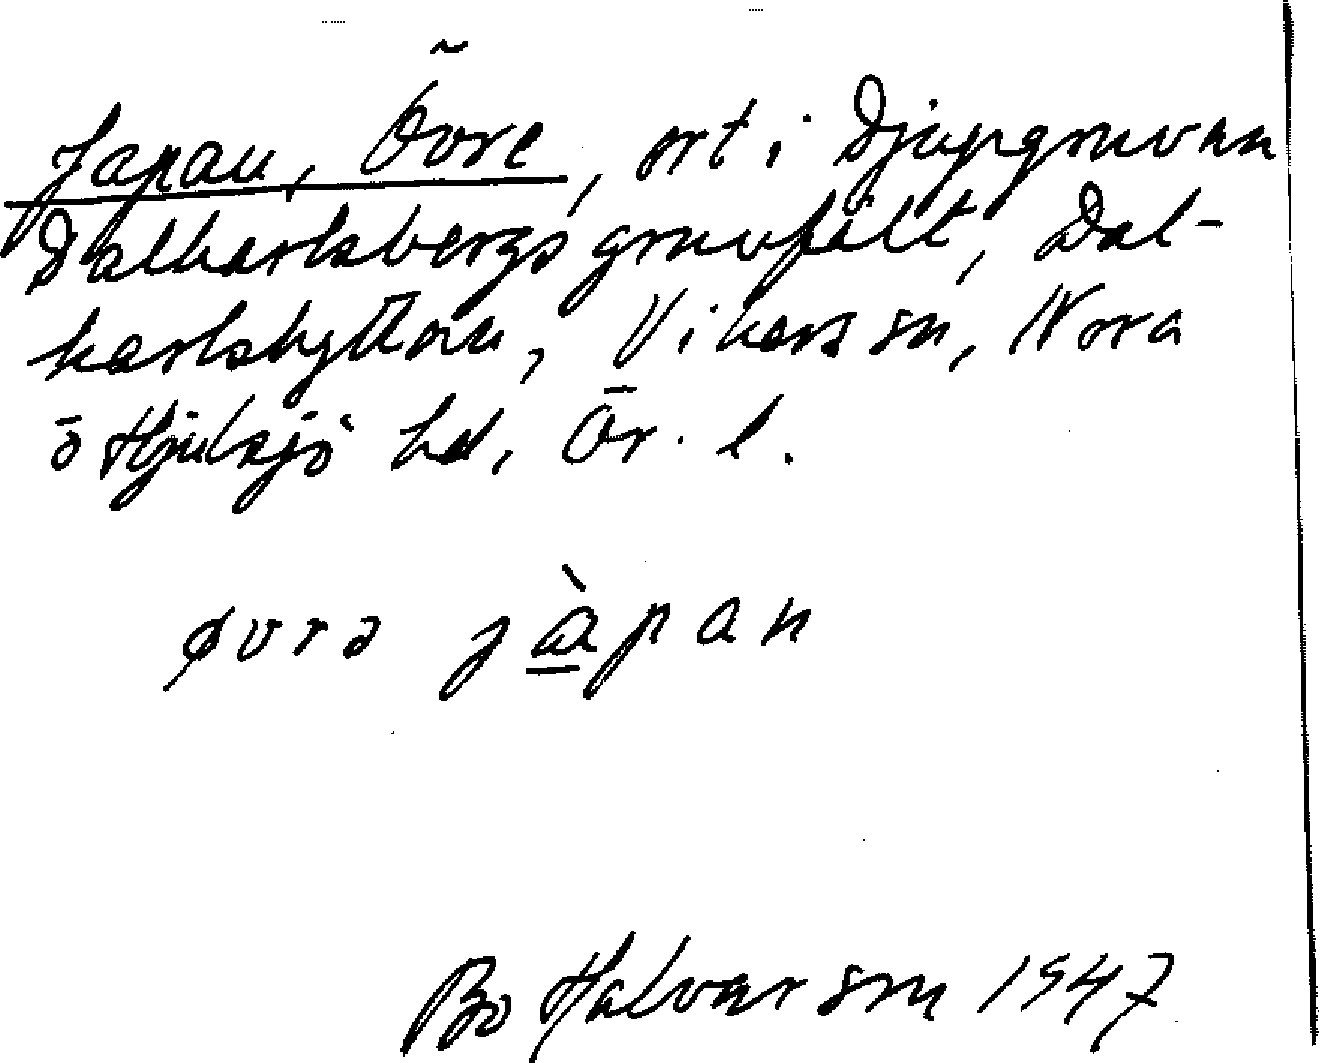 Japan, Övre, ort i Djupgruvan
Dalkarlsbergs gruvfält, Dal-
karlshyttan, Vikers sn, Nora
o Hjulsjö hd, Ör. l.
øvrə jàpan
Bo Halvarson 1947